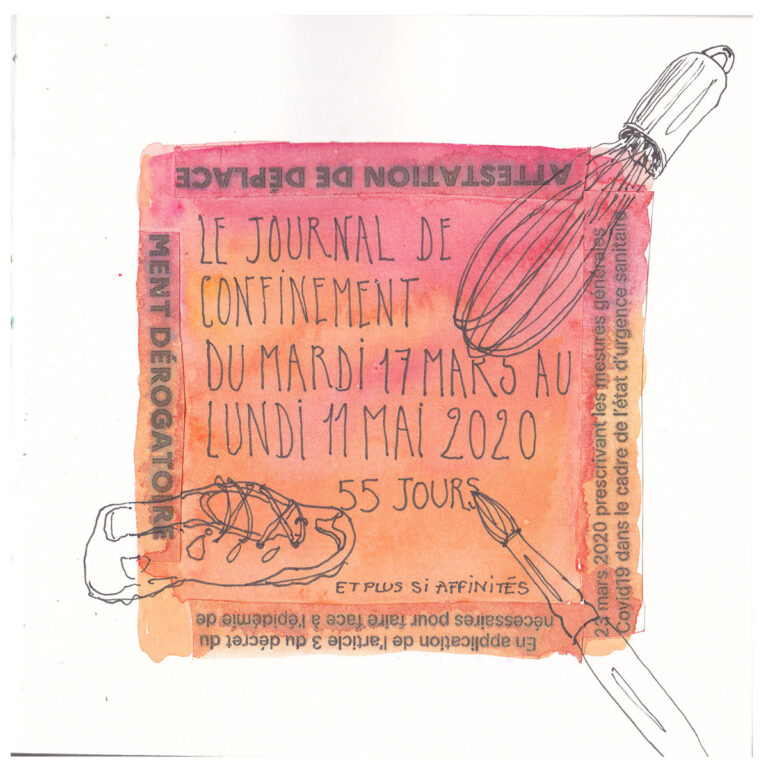 ATTESTATION DE DÉPLACE
MENT DÉROGATOIRE
LE JOURNAL DE
CONFINEMENT
DU MARDI 17 MARS AU
LUNDI 11 MAI 2020
55 JOURS
ET PLUS SI AFFINITÉS
En application de l'article 3 du décret du
nécessaires pour faire face à l'épidémie de
23 mars 2020 prescrivant les mesures générales
Covid19 dans le cadre de l'état d'urgence sanitaire